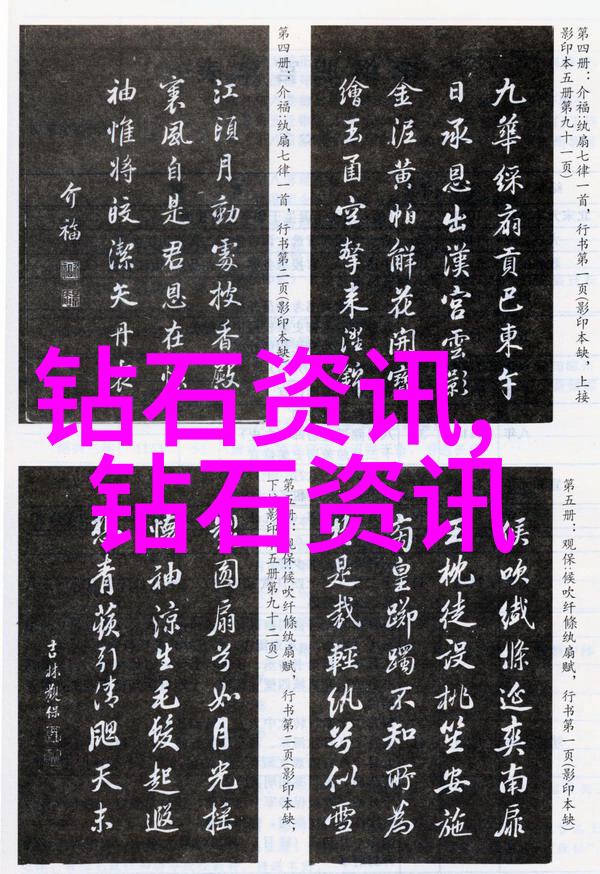 第四册：介福：纨扇七律一首，行书第一页(影印本缺，上接
影印本五册第九十一页)
九華綵扇貢巴東午
日承恩出漢宮雲影
金泥黄帕解花開寶
繪玉函空擎来湿錦
第四册：介福：纨扇七律一首，行书第二页(影印本缺)
江頭月動處披香殿
裏風自是君恩在懷
袖惟将皎潔矢丹衷
介福
钻石资讯,
钻石资讯
第五册：观保：候吹纤絛纨扇赋，行书第一页(影印本缺)
候吹纖絛延爽南扉
玉枕徒設桃笙安施
南皇躑躅不知所為
是裁輕纨兮似雪
第五册：观保：候吹纤絛纨扇赋，行书第二页(影印本缺，
下接影印本五册第九十二页)
圆扇兮如月光摇
袖涼生毛髮起遐
想青蘋引清颸天末
吉林觀保